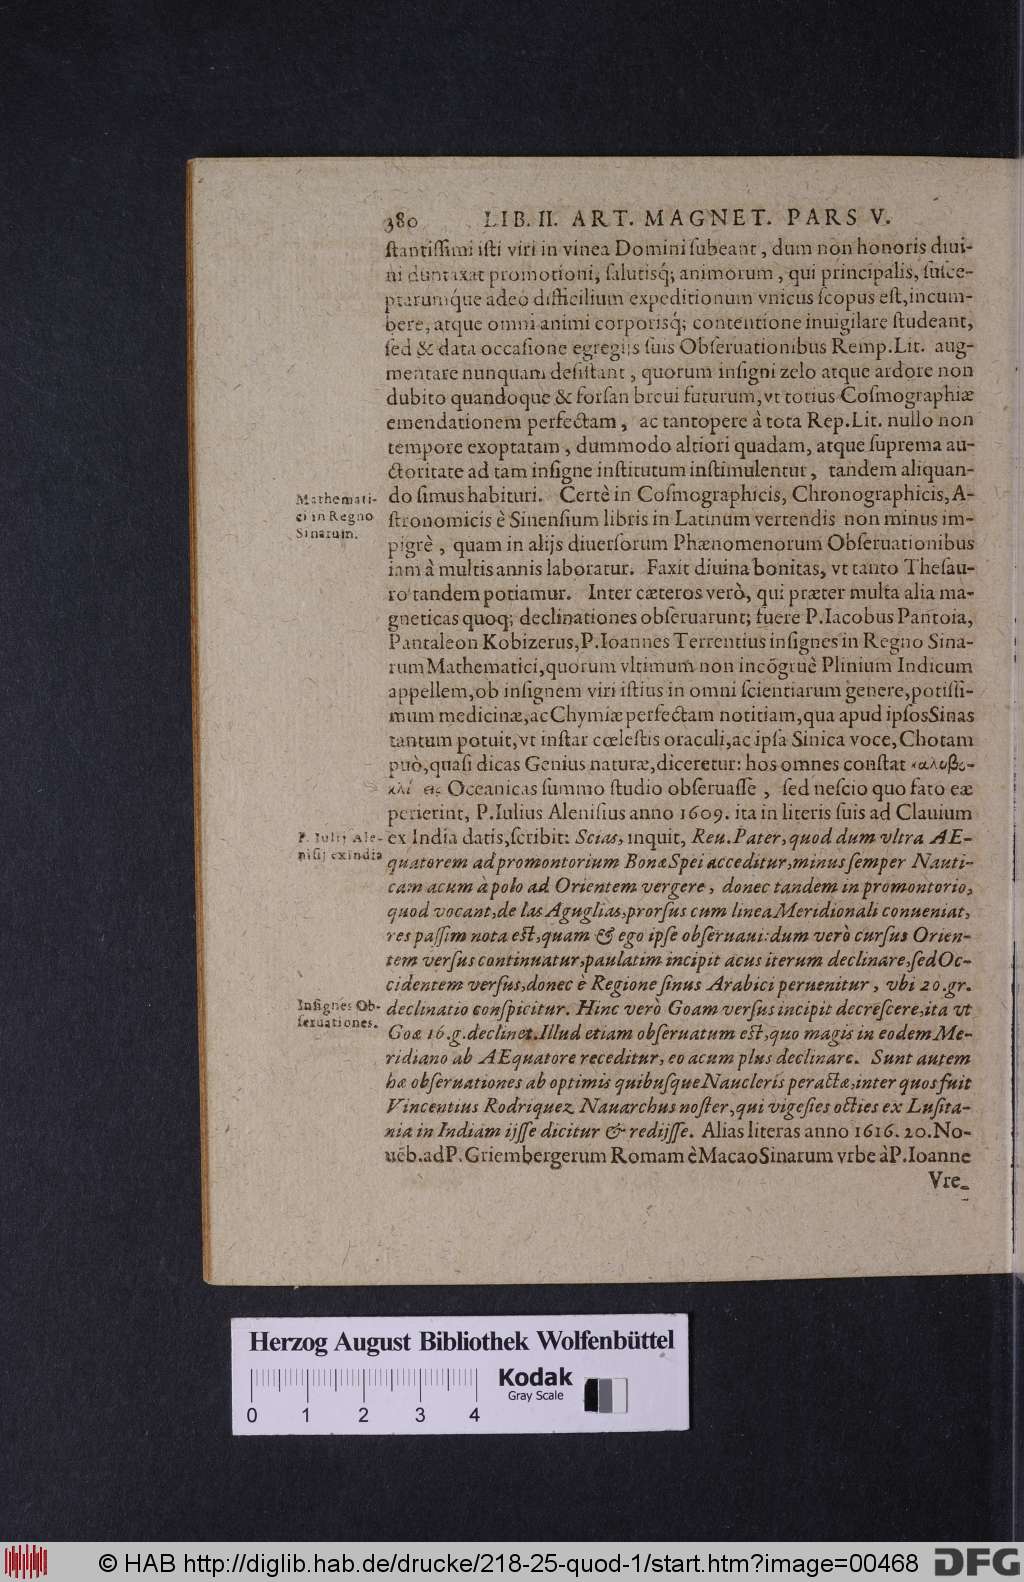 380 LIB. II. ART. MAGNET. PARS V.
ſtantiſſimi iſti viri in vinea Domini ſubeant, dum non honoris diui-
ni duntaxat promotioni, ſalutisq́; animorum, qui principalis, ſuſce-
ptarumq́ue adeo difficilium expeditionum vnicus ſcopus eſt, incum-
bere, atque omni animi corporisq́; contentione inuigilare ſtudeant,
ſed & data occaſione egregijs ſuis Obſeruationibus Remp. Lit. aug-
mentare nunquam deſiſtant, quorum inſigni zelo atque ardore non
dubito quandoque & forſan breui futurum, vt totius Coſmographiæ
emendationem perfectam, ac tantopere à tota Rep. Lit. nullo non
tempore exoptatam, dummodo altiori quadam, atque ſuprema au-
ctoritate ad tam inſigne inſtitutum inſtimulentur, tandem aliquan-
Mathemati-
ci in Regno
Sinarum.
do ſimus habituri. Certè in Coſmographicis, Chronographicis, A-
ſtronomicis è Sinenſium libris in Latinum vertendis non minus im-
pigrè, quam in alijs diuerſorum Phænomenorum Obſeruationibus
iam à multis annis laboratur. Faxit diuina bonitas, vt tanto Theſau-
ro tandem potiamur. Inter cæteros verò, qui præter multa alia ma-
gneticas quoq; declinationes obſeruarunt; fuere P. Iacobus Pantoia,
Pantaleon Kobizerus, P. Ioannes Terrentius inſignes in Regno Sina-
rum Mathematici, quorum vltimum non incõgruè Plinium Indicum
appellem, ob inſignem viri iſtius in omni ſcientiarum genere, potiſſi-
mum medicinæ, ac Chymiæ perfectam notitiam, qua apud ipſos Sinas
tantum potuit, vt inſtar cœleſtis oraculi, ac ipſa Sinica voce, Chotam
può, quaſi dicas Genius naturæ, diceretur: hos omnes conſtat
Oceanicas ſummo ſtudio obſeruaſſe, ſed neſcio quo fato eæ
perierint, P. Iulius Aleniſius anno 1609. ita in literis ſuis ad Clauium
P. Iulij Ale-
niſij ex india
ex India datis, ſcribit: Scias, inquit, Reu. Pater, quod dum vltra AE-
quatorem ad promontorium Bonæ Spei acceditur, minus ſemper Nauti-
cam acum à polo ad Orientem vergere, donec tandem in promontorio,
quod vocant, de las Aguglias, prorſus cum linea Meridionali conueniat,
res paſſim nota eſt, quam & ego ipſe obſeruaui: dum verò curſus Orien-
tem verſus continuatur, paulatim incipit acus iterum declinare, ſed Oc-
cidentem verſus, donec è Regione ſinus Arabici peruenitur, vbi 20. gr.
Inſignes Ob-
ſeruationes.
declinatio conſpicitur. Hinc verò Goam verſus incipit decreſcere, ita vt
Goæ 16. g. declinet. Illud etiam obſeruatum eſt, quo magis in eodem Me-
ridiano ab AEquatore receditur, eo acum plus declinare. Sunt autem
hæ obſeruationes ab optimis quibuſque Naucleris peractæ, inter quos fuit
Vincentius Rodriquez Nauarchus noſter, qui vigeſies octies ex Luſita-
nia in Indiam ijſſe dicitur & redijſſe. Alias literas anno 1616. 20. No-
uẽb. ad P. Griembergerum Romam è Macao Sinarum vrbe à P. Ioanne
Vre-
Herzog August Bibliothek Wolfenbüttel
Kodak
Gray Scale
0 1 2 3 4
© HAB http://diglib.hab.de/drucke/218-25-quod-1/start.htm?image=00468
DFG